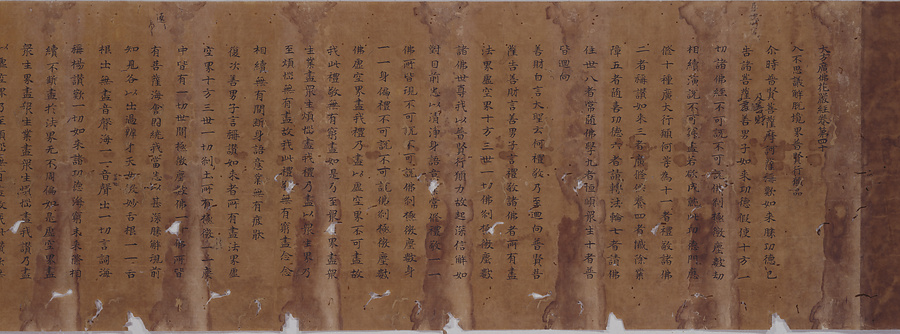 大方廣佛花嚴經卷第四十
入不思議解脫境界普賢行願品
尒時普賢菩薩摩訶薩稱歎如來勝功德已
告諸菩薩及善財言善男子如來功德假使十方一
切諸佛經不可說不可說佛剎極微塵數劫
相續演說不可窮盡若欲成就此功德門應
修十種廣大行願何等為十一者禮敬諸佛
二者稱讚如來三者廣修供養四者懺除業
障五者隨喜功德六者請轉法輪七者請佛
住世八者常隨佛學九者恒順眾生十者普
皆迴向
善財白言大聖云何禮敬乃至迴向普賢菩
薩告善財言善男子言禮敬諸佛者所有盡
法界虛空界十方三世一切佛剎極微塵數
諸佛世尊我以普賢行願力故起深信解如
對目前悉以清淨身語意業常修禮敬一一
佛所皆現不可說不可說佛剎極微塵數身
一一身遍禮不可說不可說佛剎極微塵數
佛虛空界盡我禮乃盡以虛空界不可盡故
我此禮敬無有窮盡如是乃至眾生界盡眾
生業盡眾生煩惱盡我禮乃盡以眾生界乃
至煩惱無有盡故我此禮敬無有窮盡念念
相續無有間斷身語意業無有疲猒
復次善男子言稱讚如來者所有盡法界虛
空界十方三世一切剎土所有極微一一塵
中皆有一切世間極微塵數佛一一佛所皆
有菩薩海會圍遶我當悉以甚深勝解現前
知見各以出過辯才天女微妙舌根一一舌
根出無盡音聲海一一音聲出一切言詞海
稱揚讚歎一切如來諸功德海窮未來際相
續不斷盡於法界無不周遍如是虛空界盡
眾生界盡眾生業盡眾生煩惱盡我讚乃盡